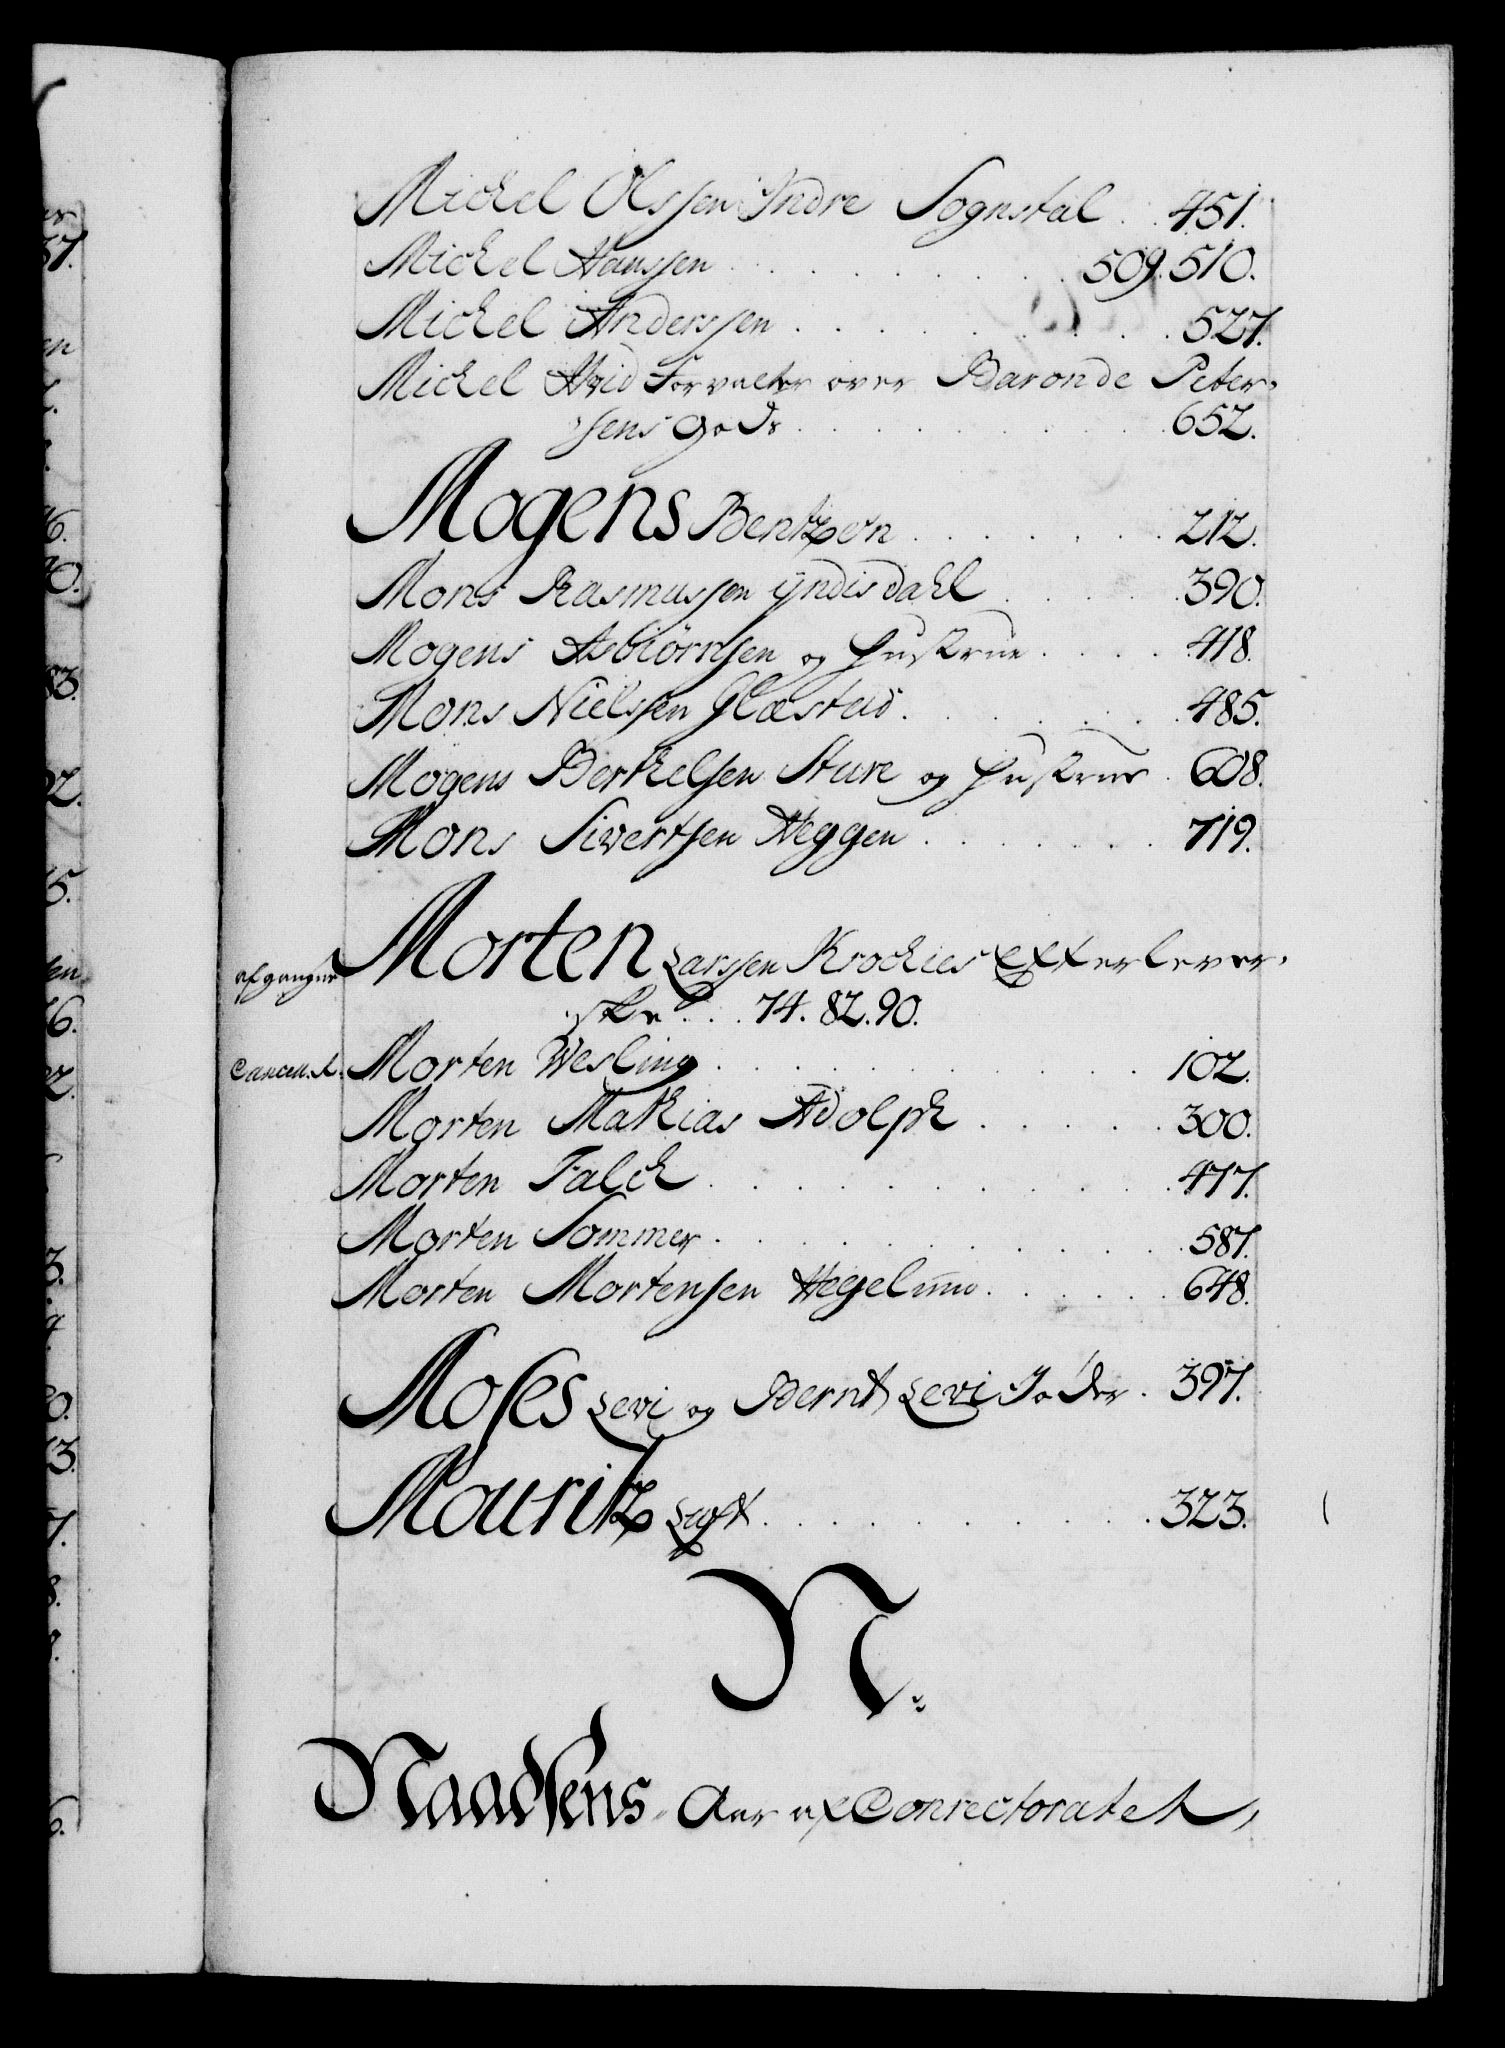 Michel Olssen Indre Sognstal . 451.
Michel Hanssen . . . . . . . . 509. 510.
Michel Anderssen . . . . . . . . 527.
Michel Hvid Forvalter over Baron de Peter-
sens Gods . . . . . . . . . 652.
Mogens Bentzøn . . . . . . . 212.
Mons Rasmussen Yndisdahl . . . . 390.
Mogens Asbiørnsen og Hustrue . . . . 418.
Mons Nielssen Glæstad . . . . . . 485.
Mogens Berthelsen Sture og Hustrue . 608.
Mons Sivertsen Heggen . . . . . . 719.
afganger Morten Larssen Krochies Efterlever-
ske . . . 74. 82. 90.
Cancell. R. Morten Wesling . . . . . . . . . 102.
Morten Mathias Adolph . . . . . 300.
Morten Falck . . . . . . . . . 477.
Morten Sommer . . . . . . . . . 587.
Morten Mortensen Hegelund . . . . . 648.
Moses Levi og Bernt Levi Jøder . 397.
Mauritz Luft . . . . . . . . . 323.
N.
Naadsens Aar af Conrectoratet,